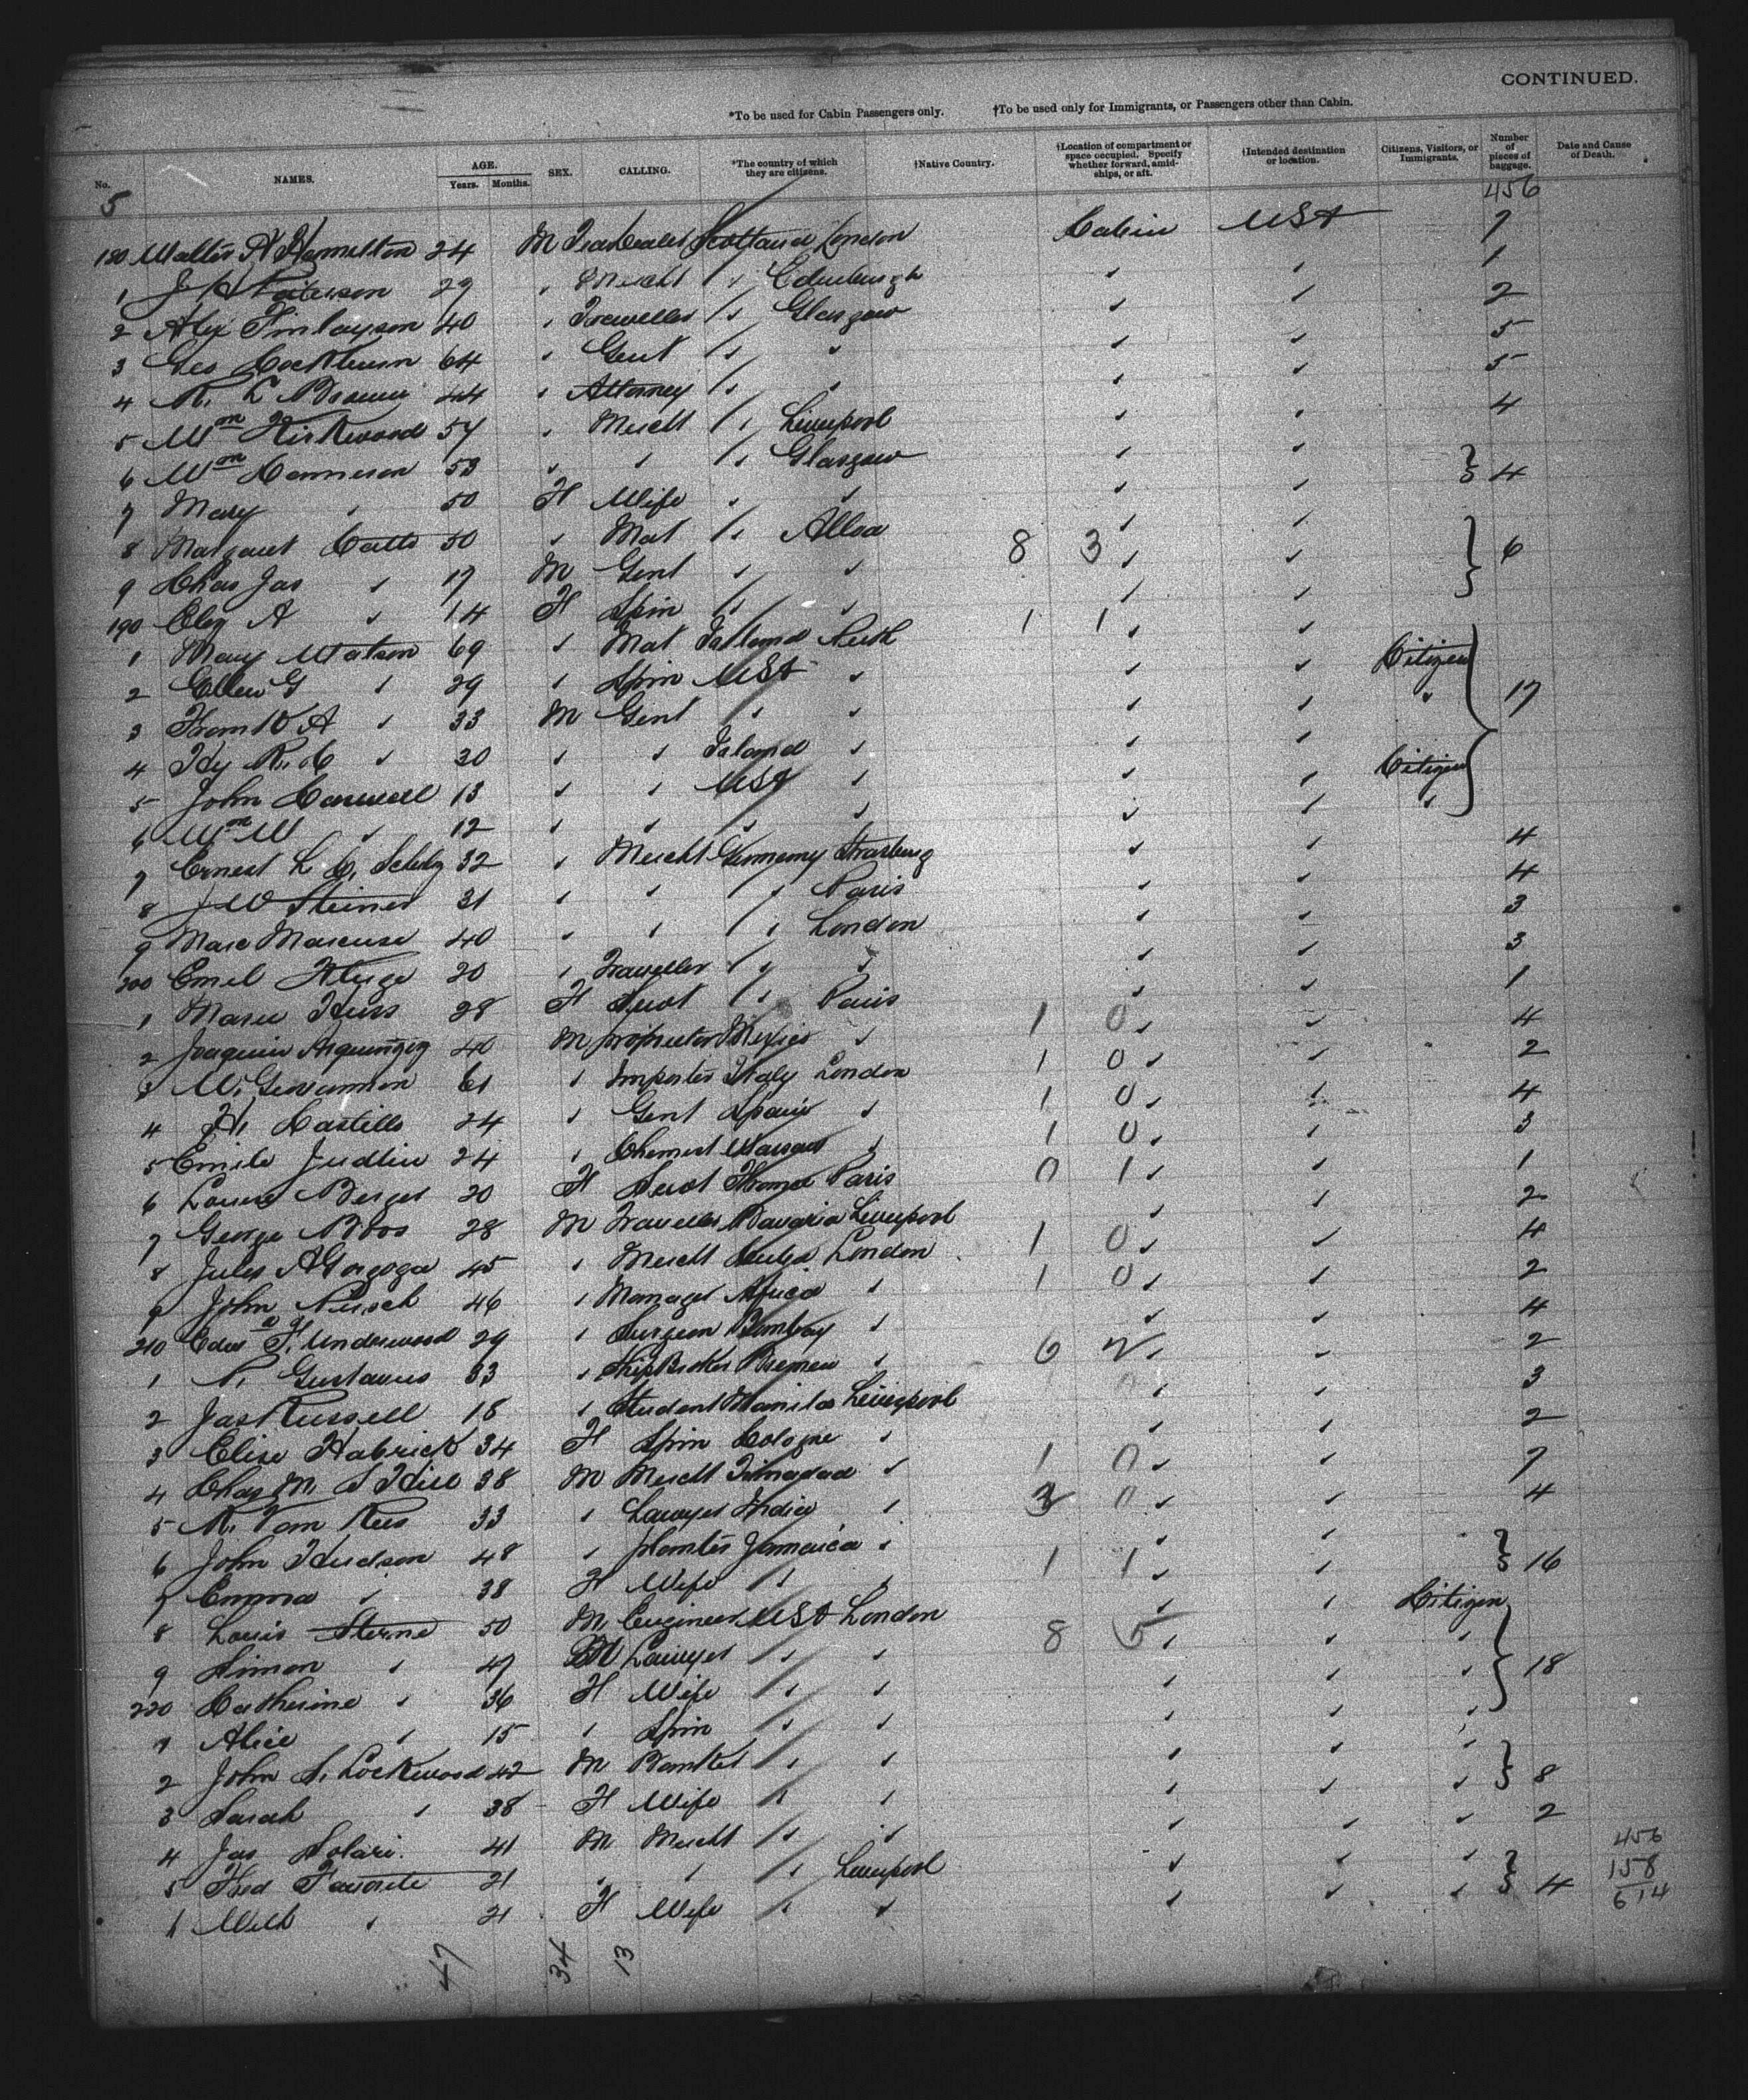 CONTINUED.
*To be used for Cabin Passengers only. †To be used only for Immigrants, or Passengers other than Cabin.
No. NAMES. AGE. Years. Months. SEX. CALLING. *The country of which they are citizens. †Native Country. †Location of compartment or space occupied. Specify whether forward, amidships, or aft. †Intended destination or location. Citizens, Visitors, or Immigrants. Number of pieces of baggage. Date and Cause of Death.
5 456
180 Walter Hamilton 24 M Scotland London Cabin USA 7
1 J Paterson 29 Mercht Edinburgh 1
2 Alex Finlayson 40 Traveller Glasgow 2
3 Geo Cockburn 64 Gent 5
4 R. L Brown 44 Attorney 5
5 Wm Kirkwood 57 Mercht Liverpool 4
6 Wm Cameron 53 Glasgow 4
7 Mary 50 F Wife
8 Margaret Catto 50 Mat Alloa 8 3 6
9 Chas Jas 17 M Gent
190 Eliz A 14 F Spin 1 1
1 Mary Watson 69 Mat Leith Citizen
2 Ellen G 29 Spin USA 17
3 A 33 M Gent
4 Hy R. 30 Citizen
5 John Carswell 13 USA
6 Wm W 12
7 Ernest L C. 32 Mercht Germany Strasburg 4
8 J W Steiner 31 Paris 4
9 Marc Marcuse 40 London 3
200 Emil Kluge 20 Traveller 3
1 Marie Huss 28 F Servt Paris 1
2 Joaquin 40 M proprietor Mexico 1 0 4
3 61 Importer Italy London 1 0 2
4 Castillo 24 Gent Spain 1 0 4
5 Emile Judlin 24 Chemist 1 0 3
6 Louise Berger 20 F Servt Paris 0 1 1
7 George Boos 28 M Traveller Bavaria Liverpool 2
8 Jules 45 Mercht Cuba London 1 0 4
9 John 46 Manager Africa 1 0 2
210 Edwd F. Underwood 29 Surgeon Bombay 4
1 Gustavus 33 Ship Broker Bremen 6 2 2
2 Jas Russell 18 Student Manila Liverpool 3
3 Elise Habrick 34 F Spin Cologne 2
4 Chas M. Hill 38 M Mercht Trinadad 1 0 7
5 R. Van Rees 33 Lawyer India 3 0 4
6 John Hudson 48 planter Jamaica
7 Emma 38 F Wife 1 1 16
8 Louis Sterne 50 M Engineer USA London Citizen
9 Simon 47 M Lawyer 8 5 18
220 Catherine 36 F Wife
1 Alice 15 Spin
2 John S. Lockwood 42 M Banker
3 Sarah 38 F Wife 8
4 Jas Solari 41 M Mercht 2
5 Fred Favorite 21 Liverpool 4
6 21 F Wife
456
158
614
47 34 13